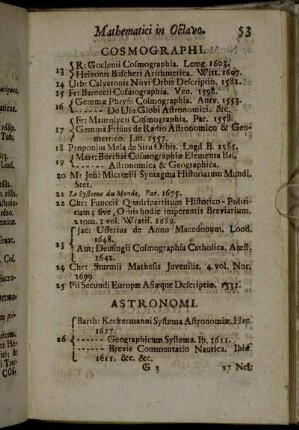 Mathematici in Octavo. 53
COSMOGRAPHI.
R: Goclenii Cosmographia. Lemg. 1603.
13 Heizonis Buscheri Arithmetica. Witt. 1607.
14 Urb: Calveronis Novi Orbis Descriptio. 1581.
15 Fr: Barocii Cosmographia. Ven. 1598.
Gemmæ Phrysii Cosmographia. Antv. 1553.
16 ----- De Usu Globi Astronomici. &c.
Fr: Maurolyci Cosmographia, Par. 1558.
17 Gemma Frisius de Radio Astronomico & Geo-
metrico. Lut. 1557.
18 Proponius Mela de Situ Orbis. Lugd B. 1585.
Mart: Borrhai Cosmographiæ Elementa Bas.
19 ----- Astronomica & Geographica.
20 Mt Joh: Micrælii Syntagma Historiarum Mundi.
Stet.
21 Le Systeme du Monde, Par. 1675.
22 Chr: Funccii Quadripartitum Historico-Politi-
cum; sive, Orbis hodie imperantis Breviarium.
2 tom. 1 vol. Wratisl. 1689.
Jac: Usserius de Anno Macedonum. Lond.
1648.
23 Ant; Deusingii Cosmographia Catholica. Amst.
1642.
24 Chr: Sturmii Mathesis Juvenilis. 4 vol. Nor.
1699.
25 Pii Secundi Europæ Asiæque Descriptio. 1531.
ASTRONOMI.
Barth: Keckermanni Systema Astronomiæ, Han.
1617.
26 ----- Geographicum Systema. Ib. 1611.
----- Brevis Commentatio Nautica. Ibid.
1611. &c. &c.
G 3 27 Nct: